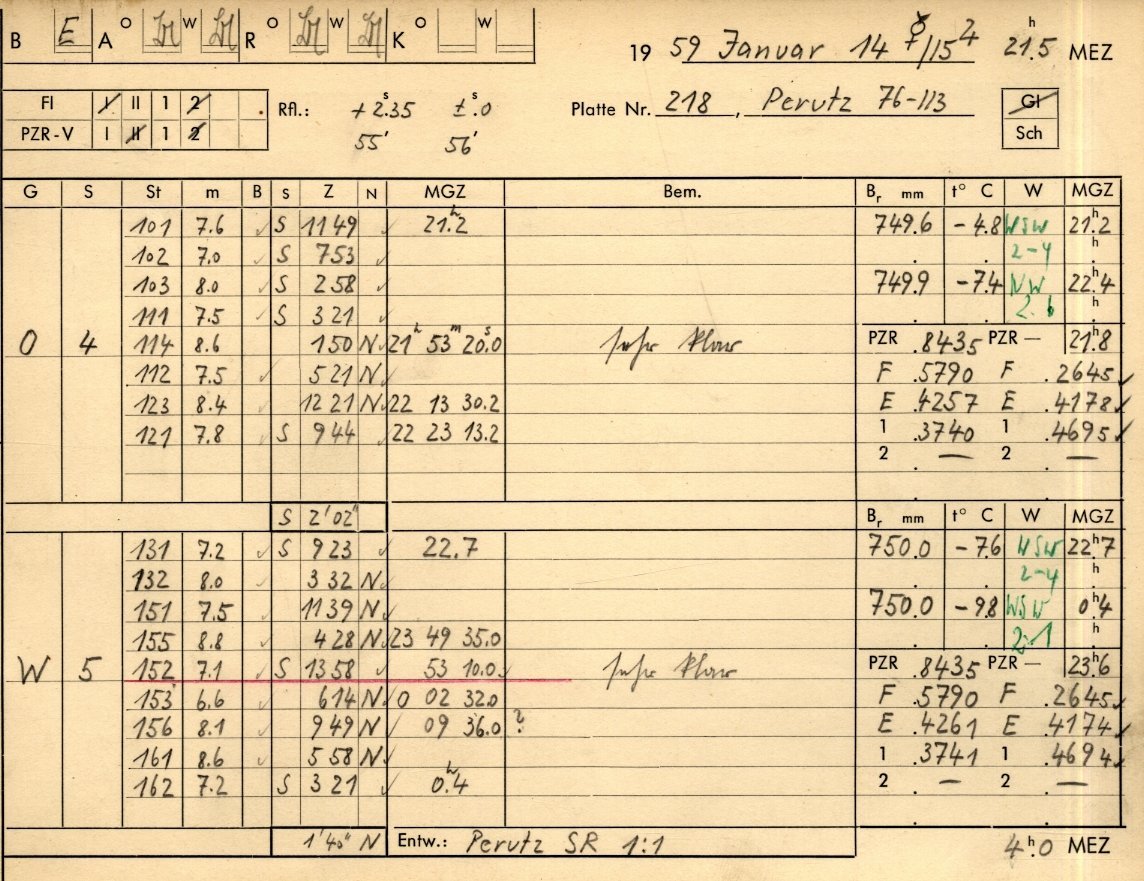 B E A O W R O W K O W
19 59 Januar 14 ☿/15 ♃ 21.5 h MEZ
Fl I II 1 2 Rfl.: +2.35 s ±.0 s Platte Nr. 218, Perutz 76-113 Gl
PZR-V I II 1 2 55' 56' Sch
G S St m B S Z N MGZ Bem. Br mm t° C W MGZ
101 7.6 ✓ S 11 49 ✓ 21.2 h 749.6 -4.8 WSW 21.2 h
102 7.0 ✓ S 7 53 ✓ 2-4 h
103 8.0 ✓ S 2 58 ✓ 749.9 -7.4 NW 22.4 h
111 7.5 ✓ S 3 21 ✓ h
O 4 114 8.6 1 50 N ✓ 21 h 53 m 20.0 s sehr klar PZR .8435 PZR — 21.8 h
112 7.5 ✓ 5 21 N ✓ F .5790 F .2645 ✓
123 8.4 ✓ 12 21 N ✓ 22 13 30.2 E .4257 E .4178 ✓
121 7.8 ✓ S 9 44 ✓ 22 23 13.2 1 .3740 1 .4695 ✓
2 — 2 —
S 2'02" Br mm t° C W MGZ
131 7.2 ✓ S 9 23 ✓ 22.7 750.0 -7.6 WSW 22.7 h
132 8.0 ✓ 3 32 N ✓ 2-4 h
151 7.5 ✓ 11 39 N ✓ 750.0 -9.8 WSW 0.4 h
155 8.8 ✓ 4 28 N ✓ 23 49 35.0 h
W 5 152 7.1 ✓ S 13 58 ✓ 53 10.0 ✓ sehr klar PZR .8435 PZR — 23.6 h
153 6.6 ✓ 6 14 N ✓ 0 02 32.0 F .5790 F .2645 ✓
156 8.1 ✓ 9 49 N ✓ 09 36.0 ? E .4261 E .4174 ✓
161 8.6 ✓ 5 58 N ✓ 1 .3741 1 .4694 ✓
162 7.2 S 3 21 ✓ 0.4 h 2 — 2 —
1'40" N Entw.: Perutz SR 1:1 4 h.0 MEZ